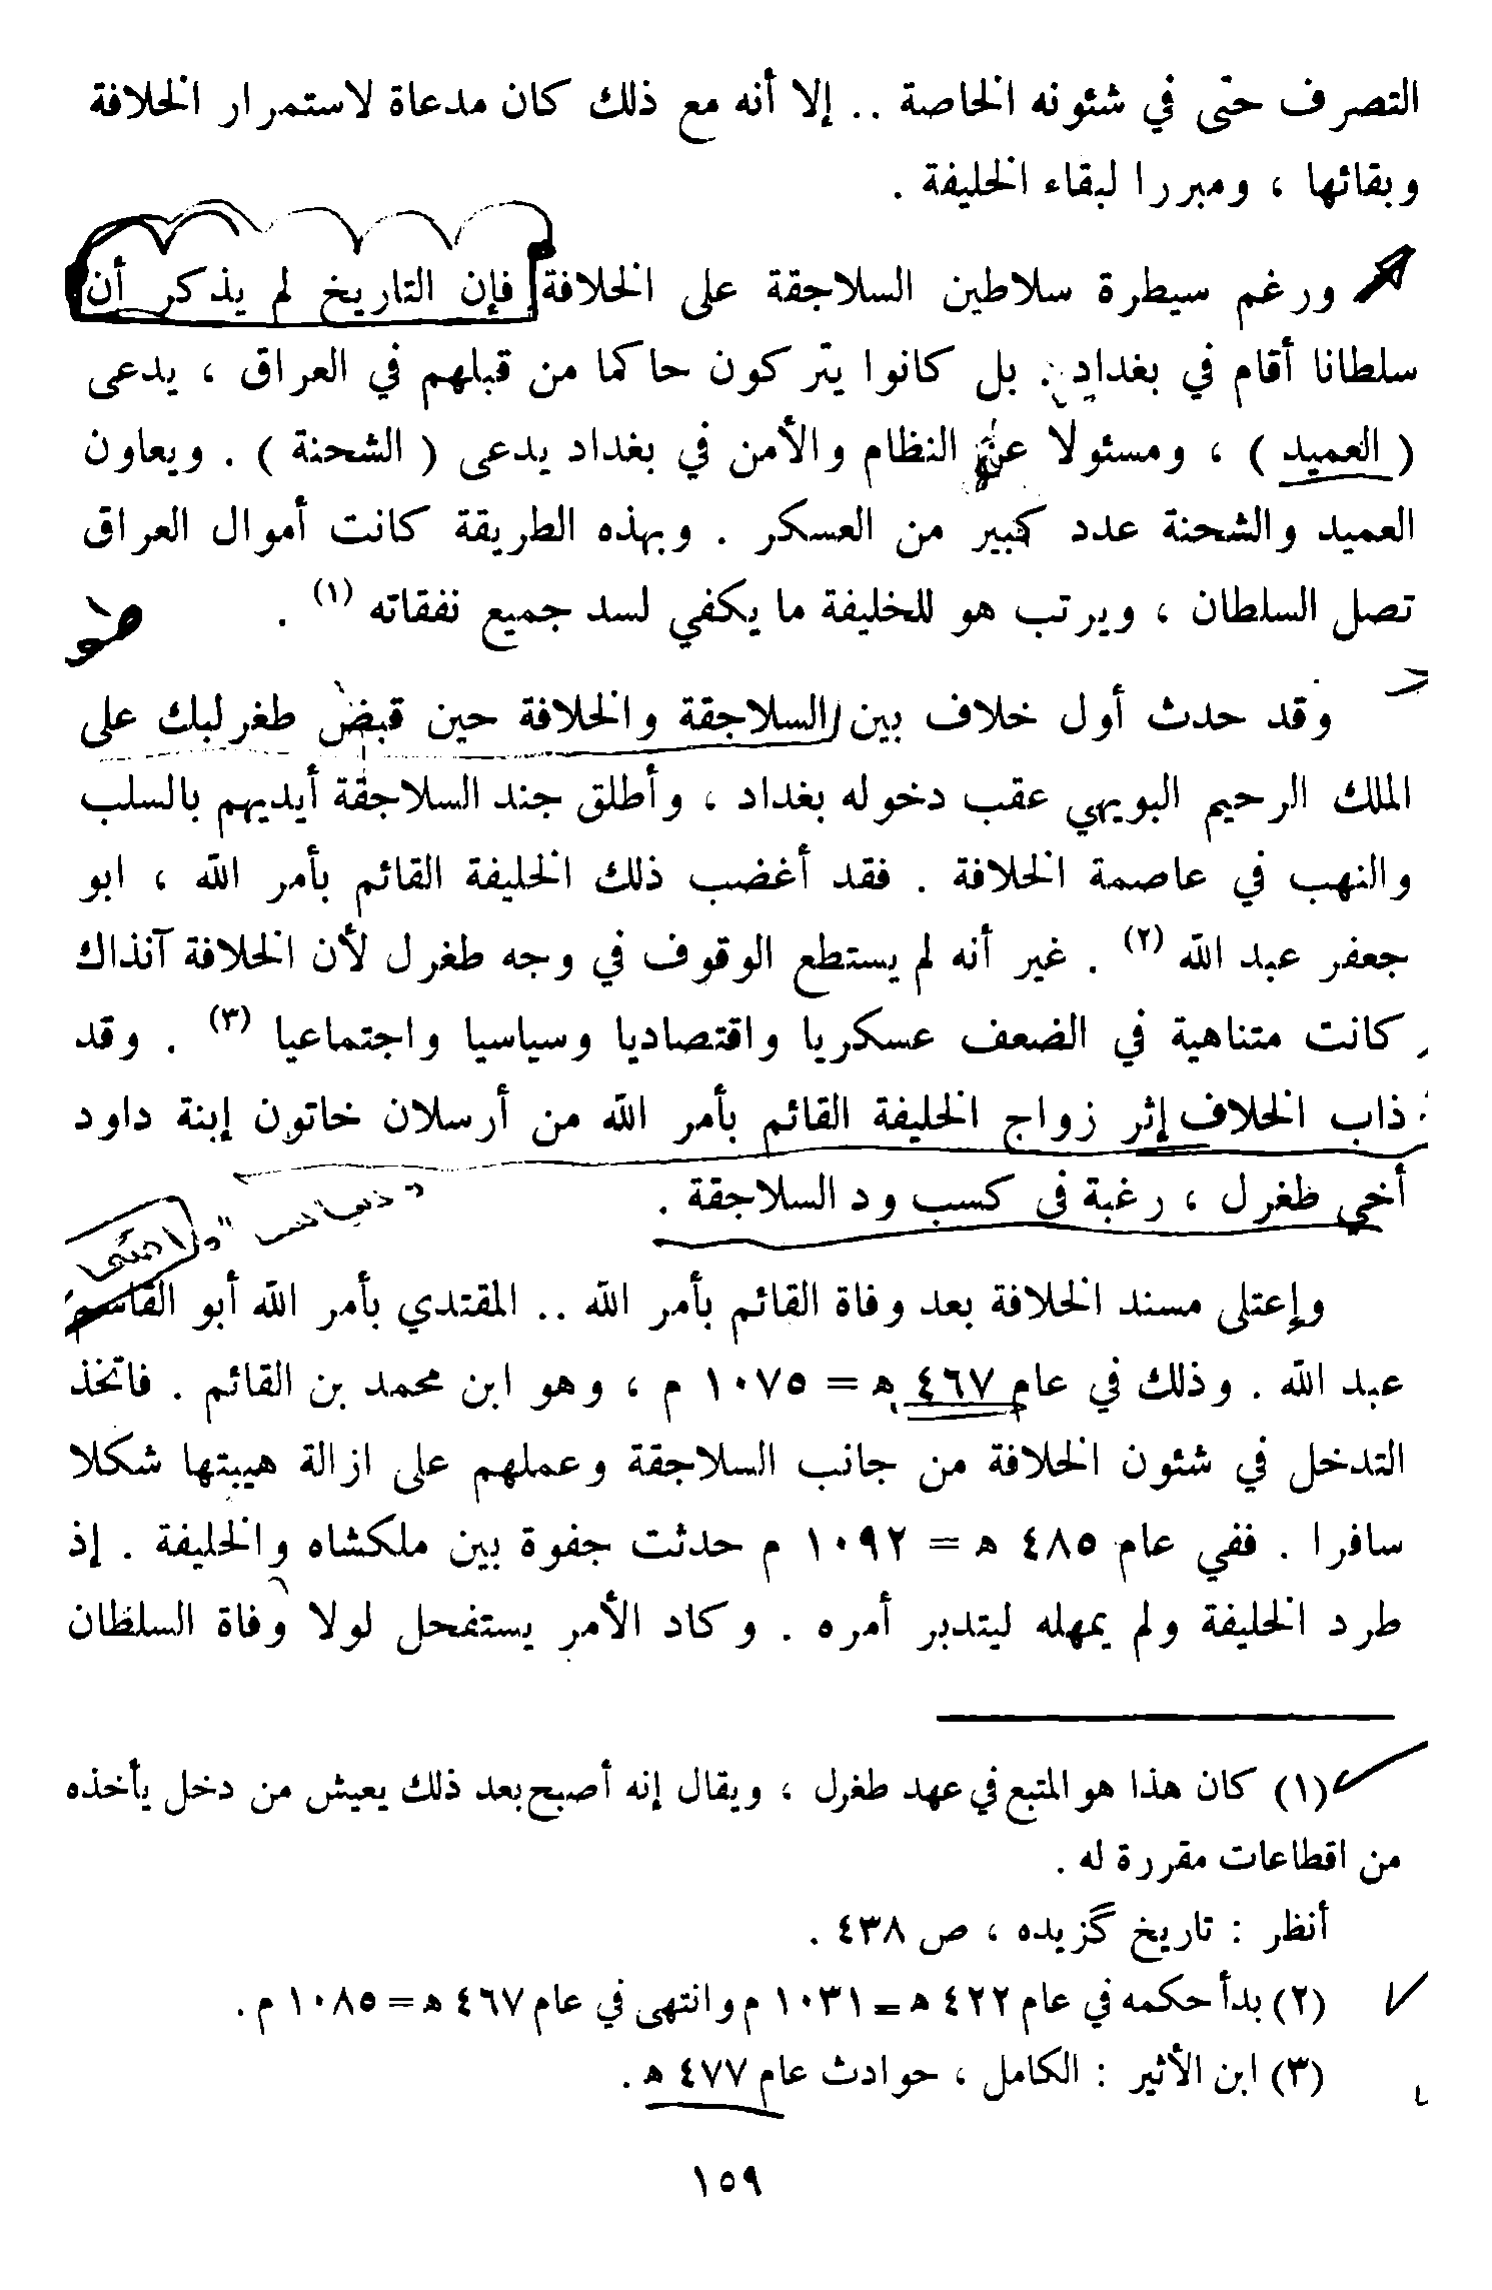 التصرف حتى في شئونه الخاصة .. إلا أنه مع ذلك كان مدعاة لاستمرار الخلافة
وبقائها ، ومبررا لبقاء الخليفة .
ورغم سيطرة سلاطين السلاجقة على الخلافة فإن التاريخ لم يذكر أن
سلطانا أقام في بغداد . بل كانوا يتركون حاكما من قبلهم في العراق ، يدعى
( العميد ) ، ومسئولا عن النظام والأمن في بغداد يدعى ( الشحنة ) . ويعاون
العميد والشحنة عدد كبير من العسكر . وبهذه الطريقة كانت أموال العراق
تصل السلطان ، ويرتب هو للخليفة ما يكفي لسد جميع نفقاته (١) .
وقد حدث أول خلاف بين السلاجقة والخلافة حين قبض طغرلبك على
الملك الرحيم البويهي عقب دخوله بغداد ، وأطلق جند السلاجقة أيديهم بالسلب
والنهب في عاصمة الخلافة . فقد أغضب ذلك الخليفة القائم بأمر الله ، ابو
جعفر عبد الله (٢) . غير أنه لم يستطع الوقوف في وجه طغرل لأن الخلافة آنذاك
كانت متناهية في الضعف عسكريا واقتصاديا وسياسيا واجتماعيا (٣) . وقد
ذاب الخلاف إثر زواج الخليفة القائم بأمر الله من أرسلان خاتون إبنة داود
أخي طغرل ، رغبة في كسب ود السلاجقة .
وإعتلى مسند الخلافة بعد وفاة القائم بأمر الله .. المقتدي بأمر الله أبو القاسم
عبد الله . وذلك في عام ٤٦٧ هـ = ١٠٧٥ م ، وهو ابن محمد بن القائم . فاتخذ
التدخل في شئون الخلافة من جانب السلاجقة وعملهم على ازالة هيبتها شكلا
سافرا . ففي عام ٤٨٥ هـ = ١٠٩٢ م حدثت جفوة بين ملكشاه والخليفة . إذ
طرد الخليفة ولم يمهله ليتدبر أمره . وكاد الأمر يستفحل لولا وفاة السلطان
(١) كان هذا هو المتبع في عهد طغرل ، ويقال إنه أصبح بعد ذلك يعيش من دخل يأخذه
من اقطاعات مقررة له .
أنظر : تاريخ گزيده ، ص ٤٣٨ .
(٢) بدأ حكمه في عام ٤٢٢ هـ = ١٠٣١ م وانتهى في عام ٤٦٧ هـ = ١٠٨٥ م .
(٣) ابن الأثير : الكامل ، حوادث عام ٤٧٧ هـ .
١٥٩